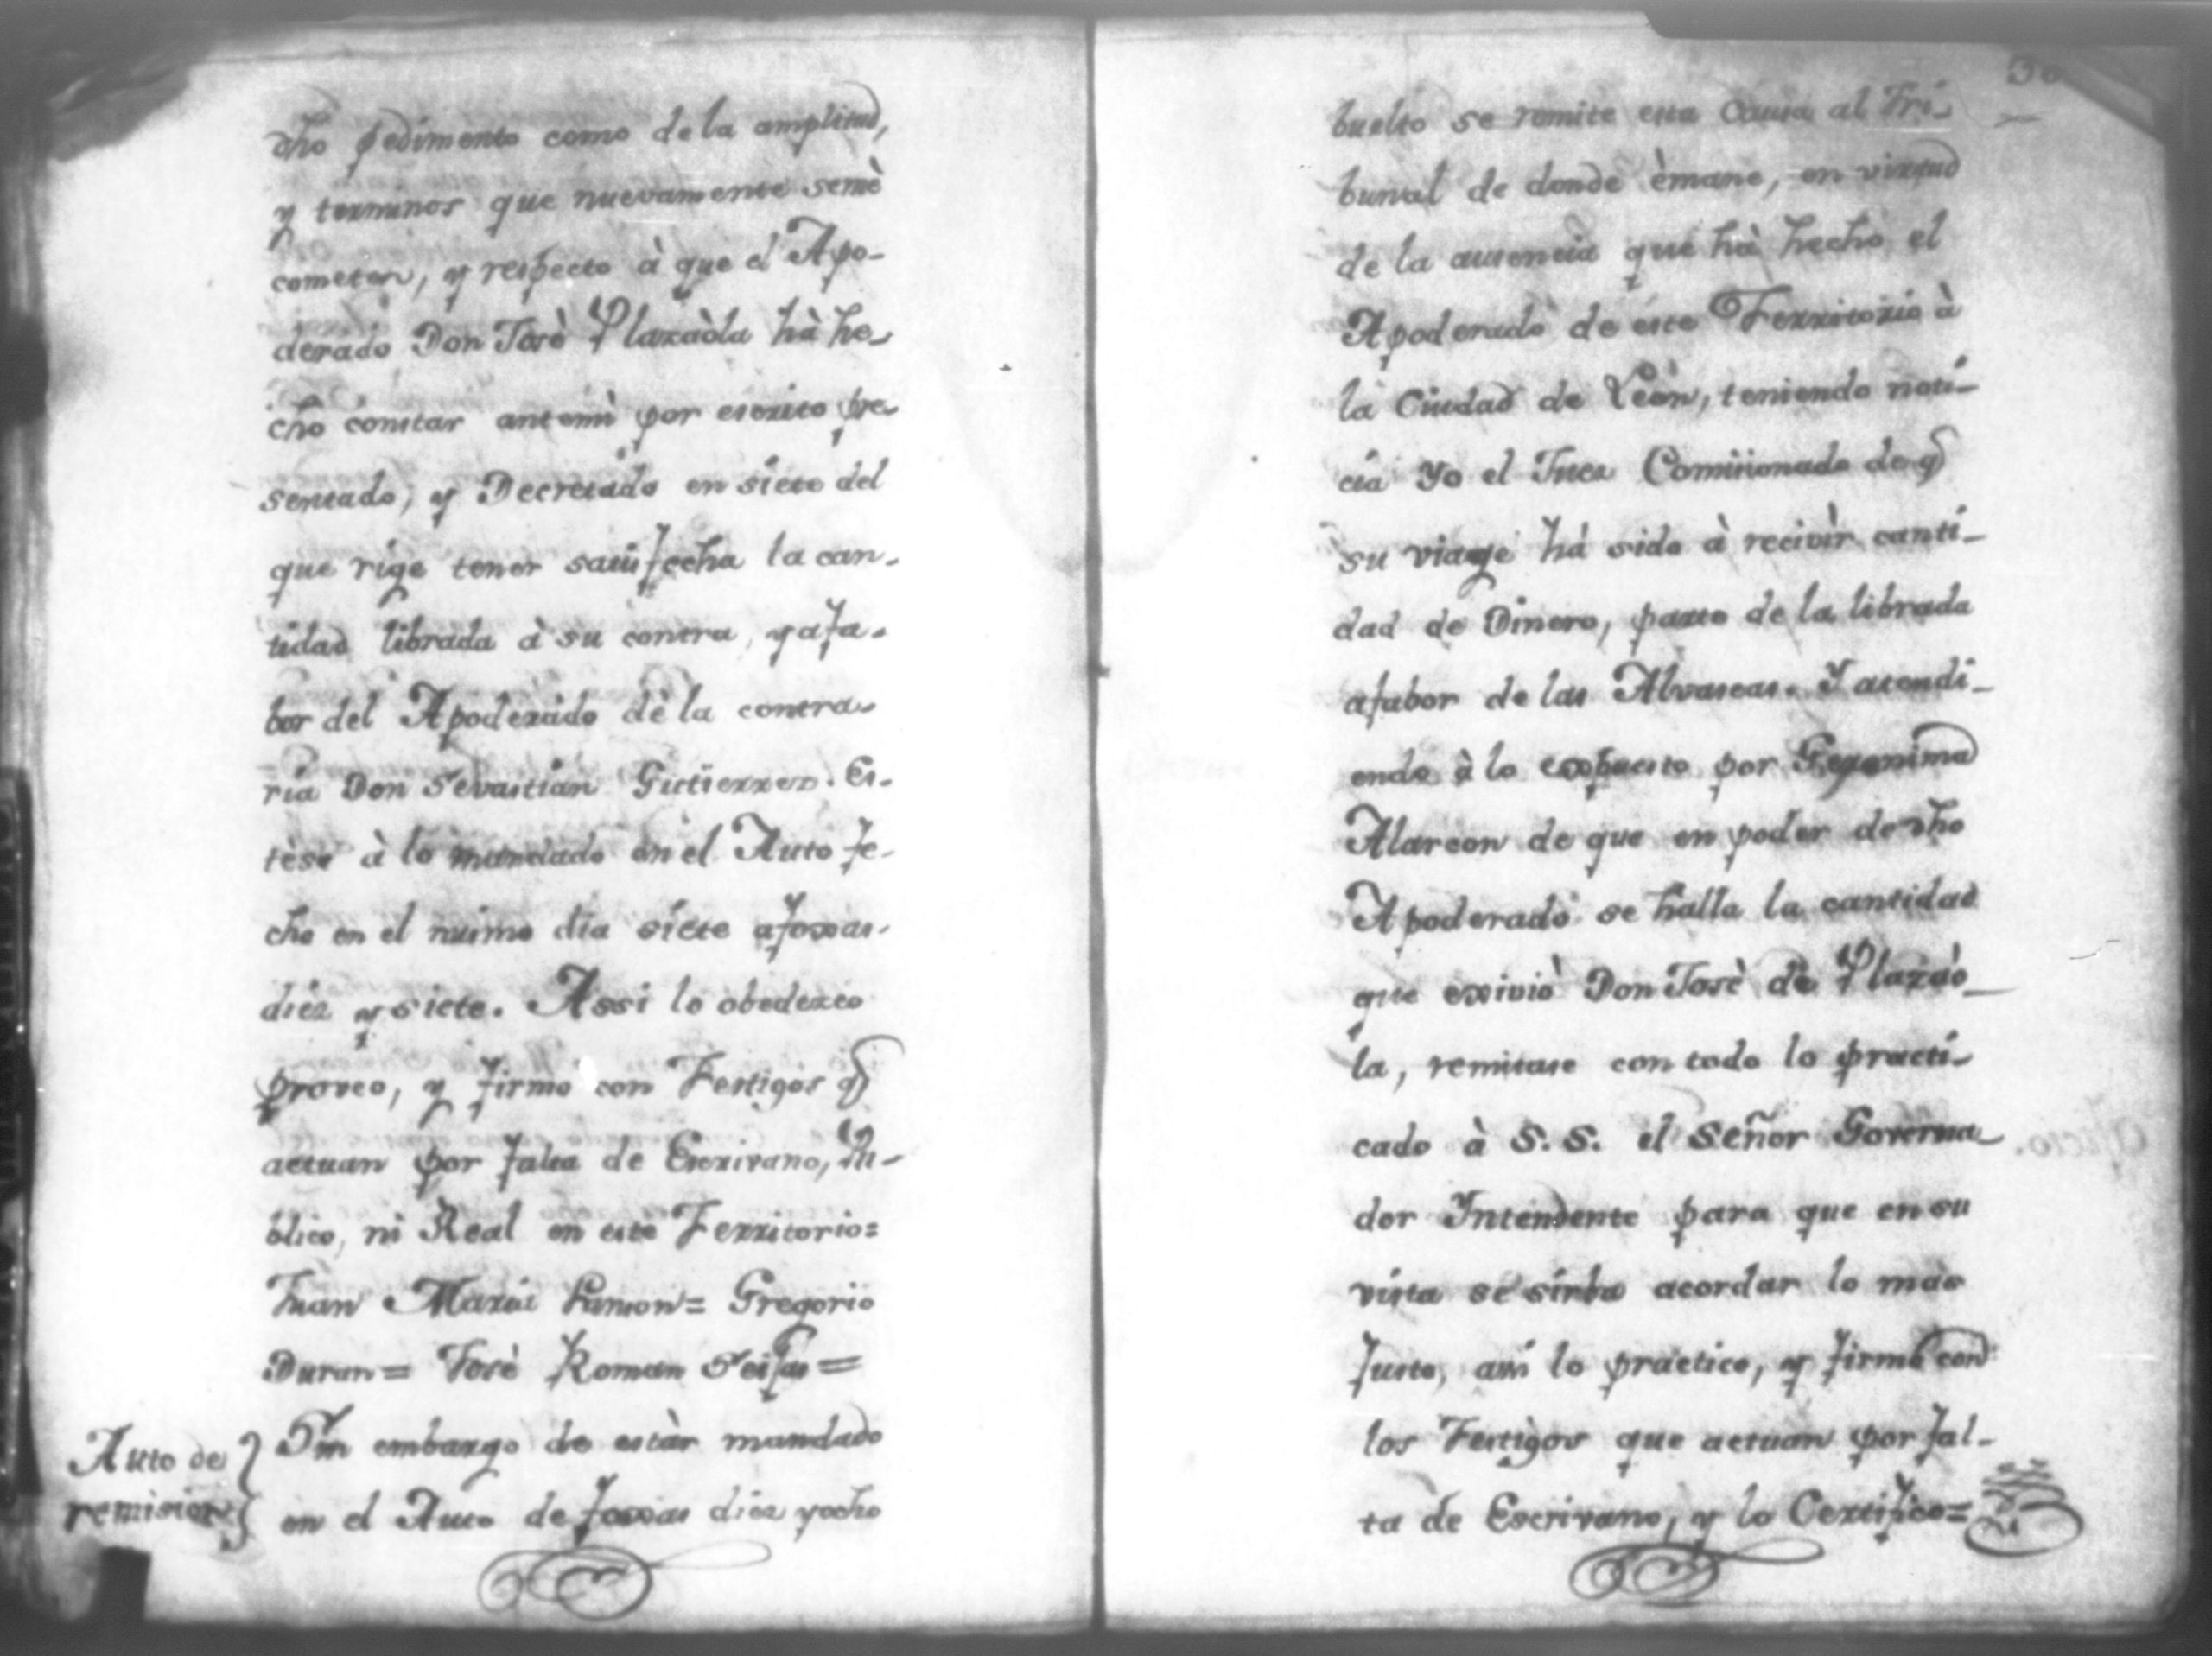 dho pedimento como de la amplitud,
y terminos que nuevamente semè
cometen, y respecto à que el Apo-
derado Don Josè Plazaòla hà he-
cho constar antemì por escrito pre-
sentado, y Decretado en siete del
que rige tener satisfecha la can-
tidad librada à su contra, y afa-
bor del Apoderado de la contra-
ria Don Sevastian Gutierrez. Es-
tèse à lo mandado en el Auto fe-
cho en el mismo dia siete afoxas
diez y siete. Assi lo obedezco
proveo, y firmo con Testigos q
actuan por falta de Escrivano, Pu-
blico, ni Real en este Territorio=
Juan Maria Gregorio
Duran= Josè Roman Seijas=
Auto de
remision
Sin embargo de estàr mandado
en el Auto de foxas diez yocho
buelto se remite esta Causa al Tri-
bunal de donde èmane, en virtud
de la ausencia que hà hecho el
Apoderado de este Territorio à
la Ciudad de Leòn, teniendo noti-
cia Yo el Juez Comissionado de q
su viage há sido à recivìr canti-
dad de Dinero, parte de la librada
afabor de las Alvaseas. Y atendi-
endo à lo expuesto por Geronima
Alarcon de que en poder de dho
Apoderado se halla la cantidad
que exiviò Don Josè de Plazaò-
la, remitase con todo lo practi-
cado à S. S. el Señor Governa-
dor Intendente para que en su
vista se sirba acordar lo mas
Justo, assi lo practico, y firmo con
los Testigos que actuan por fal-
ta de Escrivano, y lo Certifico=